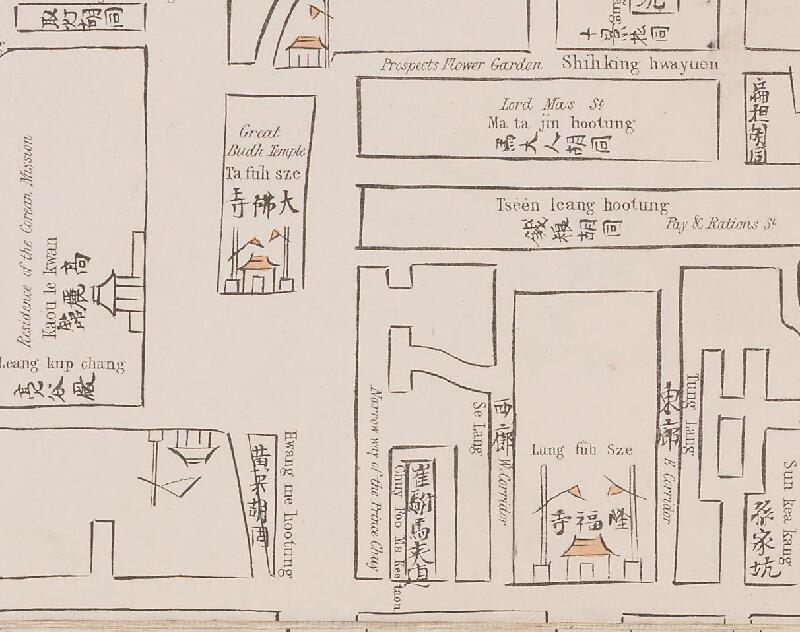 取燈胡同
Prospects Flower Garden Shihking hwayuen
Lord Mas St
Ma ta jin hootung
馬大人胡同
扁担胡同
Great
Budh Temple
Ta fuh sze
大佛寺
Tseén leang hootung
錢糧胡同
Pay & Rations St
Residence of the Corean Mission
Kaou le kwan
高麗館
Leang kup chang
亮谷厰
Hwang me hootung
黃米胡同
Narrow way of the Prince Chuy
Chuy Foo Ma Kee taou
崔駙馬夾道
Se Lang
西廊
W. Corridor
Lung fuh Sze
隆福寺
東廊
Tung Lang
E. Corridor
Sun kea kang
孫家坑